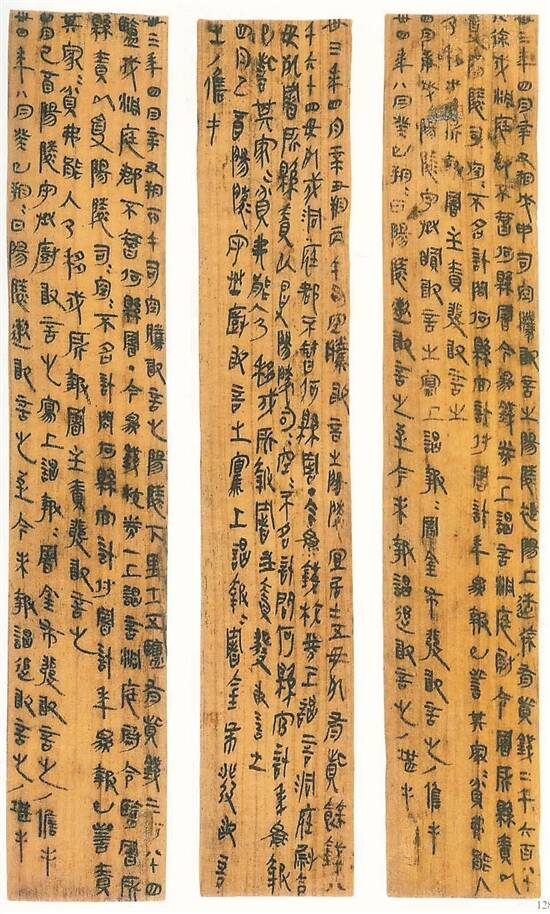 卅三年四月辛丑朔戊申司空騰敢言之陽陵褆陽上造徐有貲錢二千六百八十
八徐戍洞庭郡不智何縣署今為錢券一上謁言洞庭尉令署所縣責以
受陽陵司空=不名計問何縣官計付署計年為報已訾其家=貧弗能入
乃移戍所報署主責發敢言之
四月庚戌陽陵守丞瞫敢言之寫上謁報=署金布發敢言之/儋手
卅四年八月癸巳朔=日陽陵遬敢言之至今未報謁追敢言之/堪手
卅三年四月辛丑朔丙午司空騰敢言之陽陵宜居士五毋死有貲餘錢八
千六十四毋死戍洞庭郡不智何縣署・今為錢校券一上謁言洞庭尉令
毋死署所縣責以受陽陵司空=不名計問何縣官計年為報
已訾其家=貧弗能入乃移戍所報署主責發敢言之
四月己酉陽陵守丞廚敢言之寫上謁報=署金布發敢言
之/儋手
卅三年四月辛丑朔丙午司空騰敢言之陽陵下里士五鹽有貲錢三百八十四
鹽戍洞庭郡不智何縣署・今為錢校券一上謁言洞庭尉令鹽署所
縣責以受陽陵司空=不名計問何縣官計付署計年為報已訾責
其家=貧弗能入乃移戍所報署主責發敢言之
四月己酉陽陵守丞廚敢言之寫上謁報=署金布發敢言之/儋手
卅四年八月癸巳朔=日陽陵遬敢言之至今未報謁追敢言之/堪手